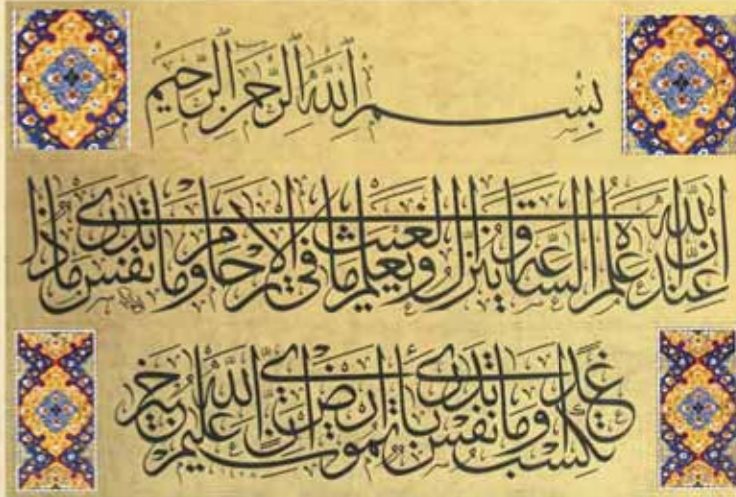 بسم الله الرحمن الرحيم
ان الله عنده علم الساعة وينزل الغيث ويعلم ما في الارحام وما تدري نفس ماذا
تكسب غدا وما تدري نفس باي ارض تموت ان الله عليم خبير